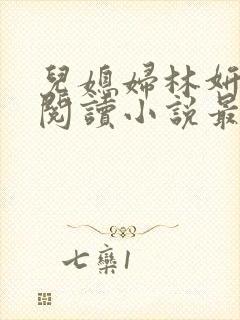 兒媳婦林妍
閱讀小説最
七欒1